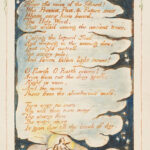 Hear the voice of the Bard!
Who Present, Past, & Future sees
Whose ears have heard,
The Holy Word,
That walk'd among the ancient trees.
Calling the lapsed Soul
And weeping in the evening dew;
That might controll
The starry pole;
And fallen fallen light renew!
O Earth O Earth return!
Arise from out the dewy grass;
Night is worn,
And the morn
Rises from the slumberous mass.
Turn away no more:
Why wilt thou turn away
The starry floor
The watry shore
Is giv'n thee till the break of day.